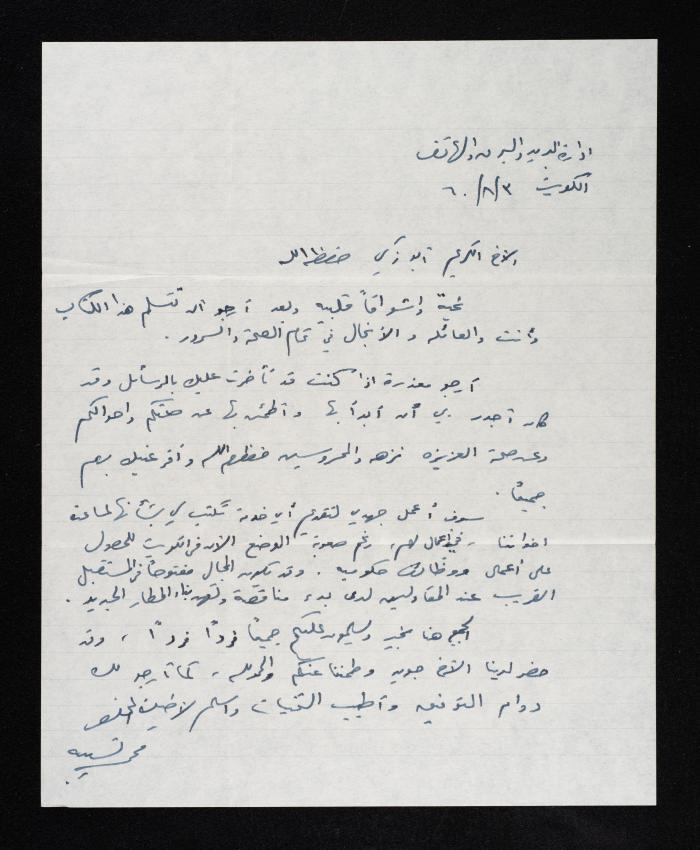 ادارة البريد والبرق والهاتف
الكويت ٣/٨/٦٠
الاخ الكريم ابو زكي حفظه الله
تحية واشواقاً قلبيه وبعد أرجو أن تتسلم هذا الكتاب
وأنت والعائله والأنجال في تمام الصحة والسرور .
أرجو معذرة اذا كنت قد تأخرت عليك بالرسائل وقد
كان أجدر بي أن أبدأ بها وأطمئن بها عن صحتكم واحوالكم
وعن صحة العزيزه نزهه والمحروسين حفظهم الله وأقر عينيك بهم
جميعاً .
سوف أعمل جهدي لتقديم أي خدمة تكتب لي بشأنها لمساعدة
اخواننا ، رغم صعوبة الوضع الآن في الكويت للحصول
على أعمال ووظائف حكوميه . وقد يكون المجال مفتوحاً في المستقبل
القريب عند المقاولين لدى بدء مناقصة وتعهد بناء المطار الجديد .
الجميع هنا بخير ويسلمون عليكم جميعاً فرداً فرداً ، وقد
حضر لدينا الأخ وطمننا عنكم والحمد لله ، كما أرجو لك
دوام التوفيق وأطيب التحيات واسلم لأخيك المخلص
محمد